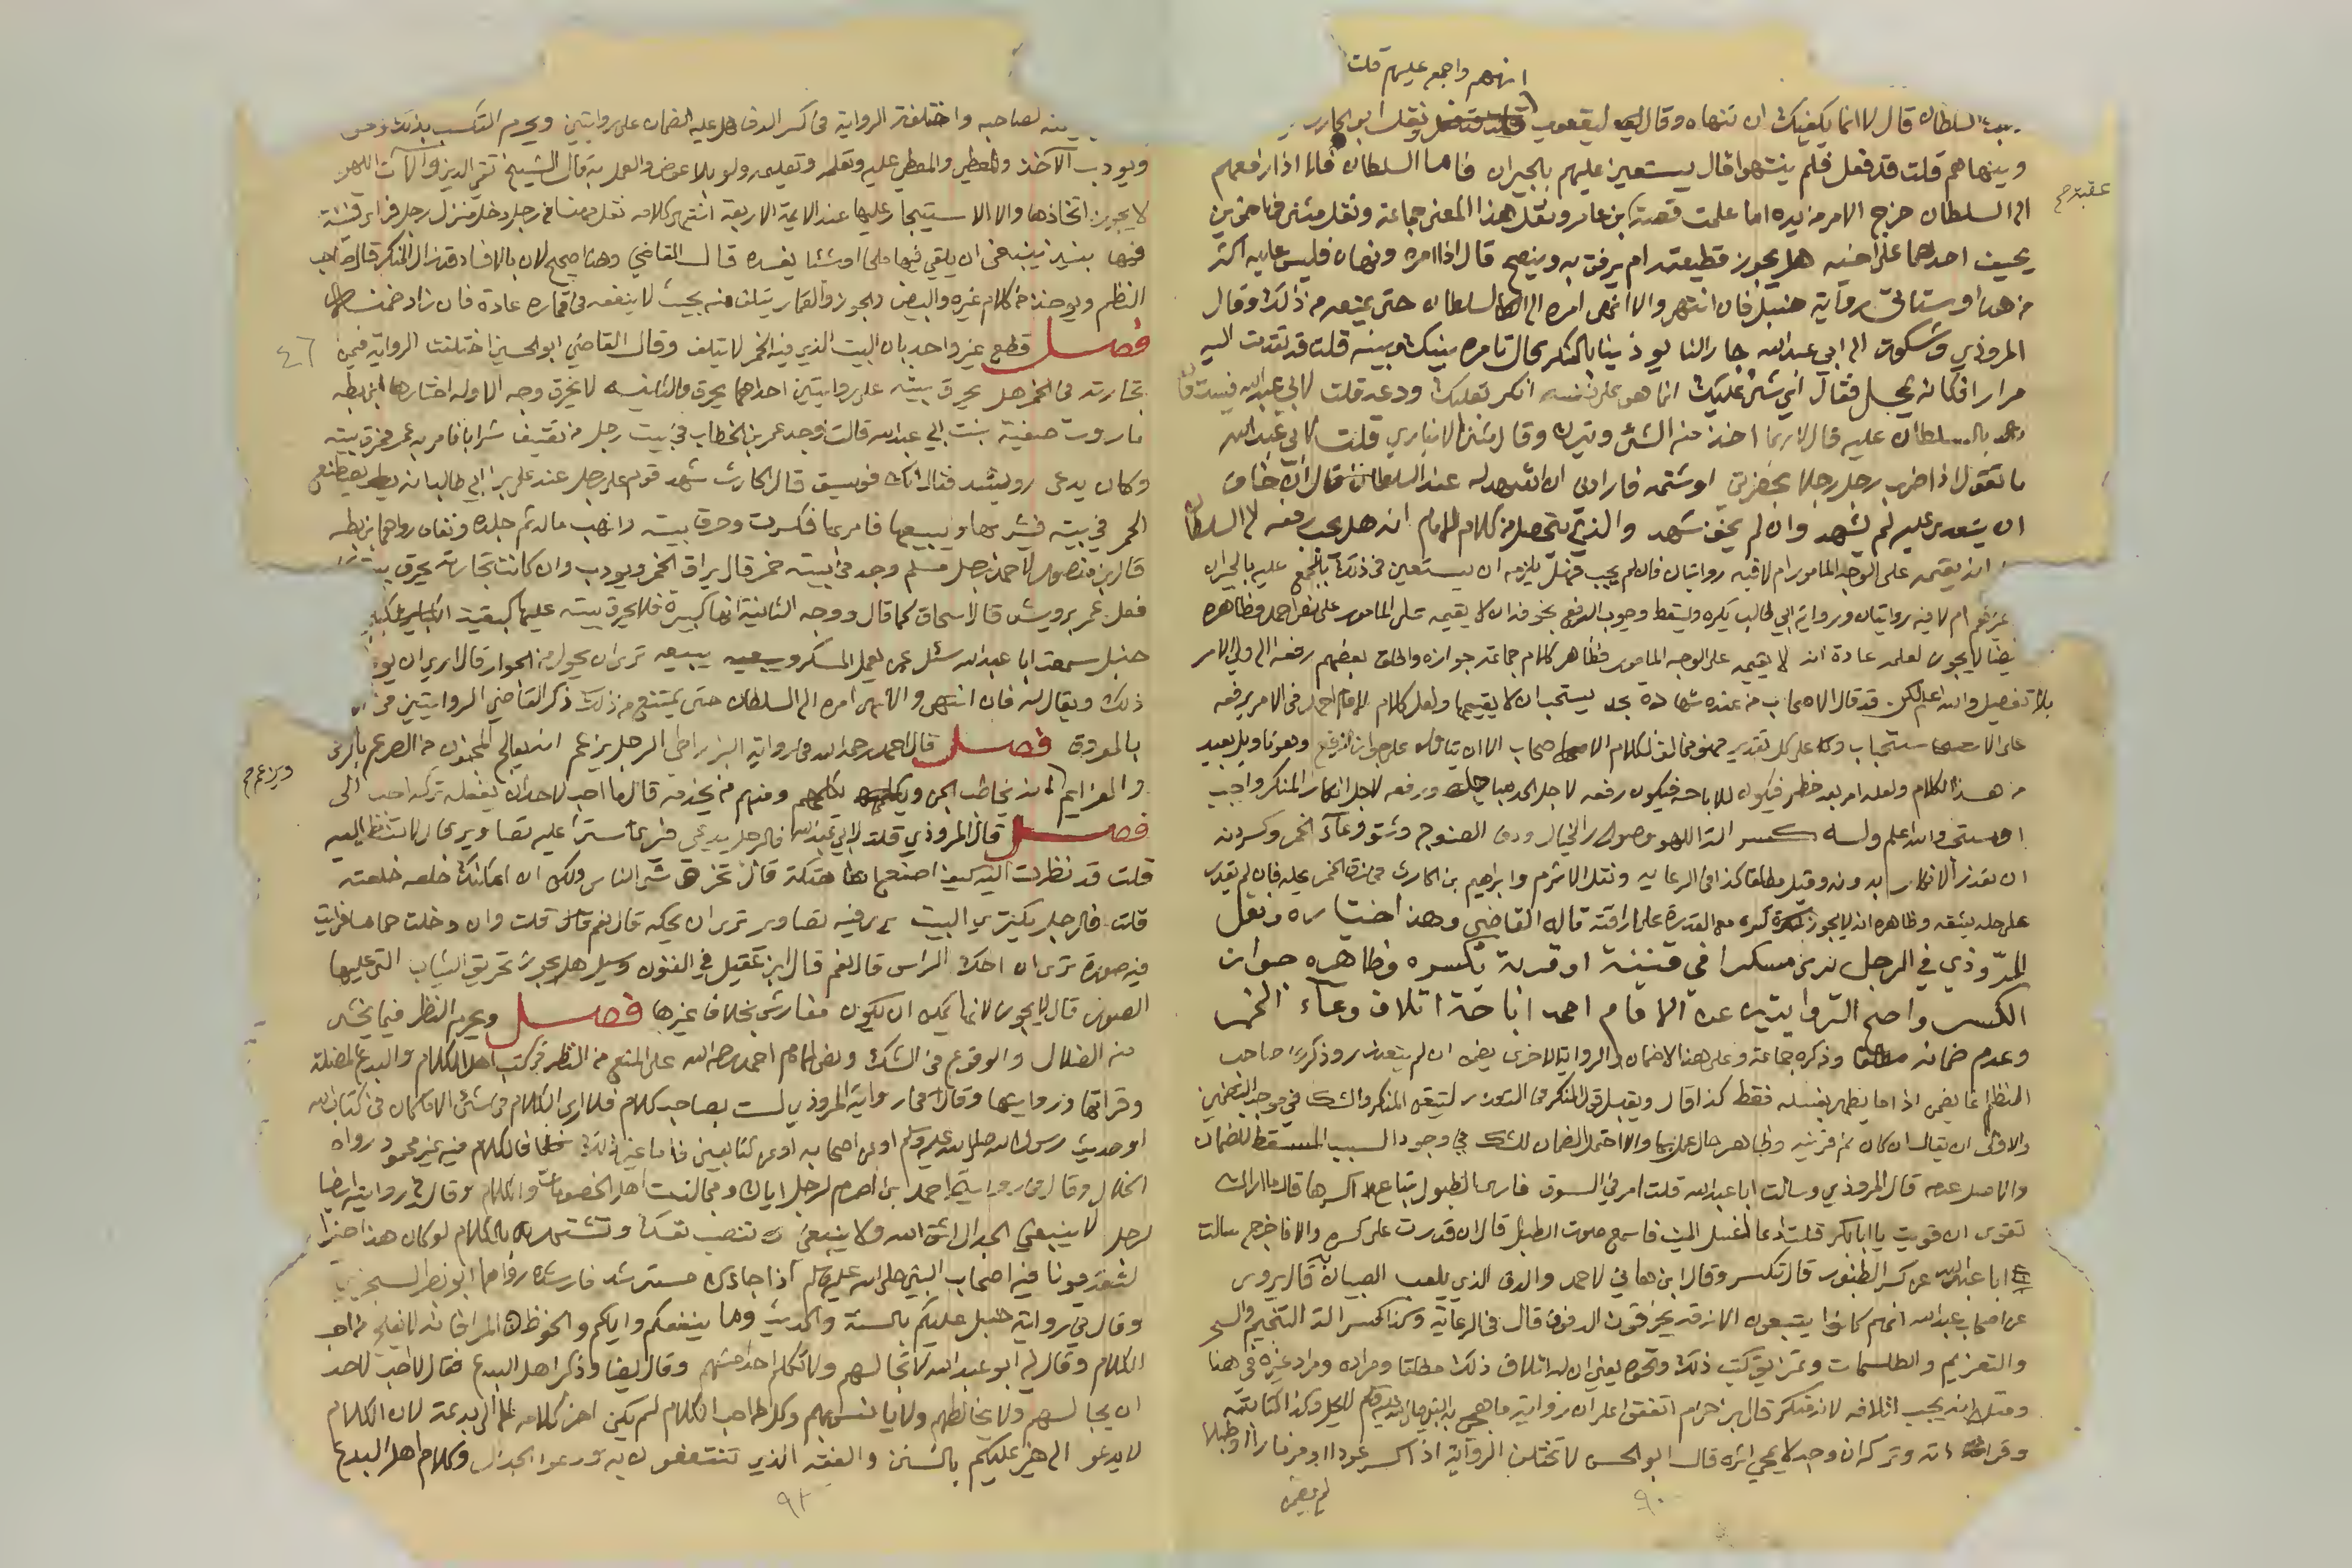 انهم واجمع عليهم قلت
السلطان قال لا انما يكفيك ان تنهاه وقال ليعقوب ونقل ابو الحارث
وينهاهم قلت قد فعل فلم ينتهوا قال يستعين عليهم بالجيران فاما السلطان فلا اذا رفعهم
عقبة صح
الى السلطان خرج الامر من يده اما علمت قصة بن عامر ونقل هذا المعنى جماعة ونقل مثنى في اخوين
يحيف احدهما على اخيه هل يجوز قطيعته ام يرفق به وينصح قال اذا امره ونهاه فليس عليه اكثر
من هذا وستاتي رواية حنبل فان انتهى والا انهى امره الى السلطان حتى يمنعه من ذلك وقال
المروذي وشكوت الى ابي عبد الله جارا لنا يوذينا بالمنكر قال تامره بينك وبينه قلت قد تقدمت اليه
مرارا فكانه يمحل فقال اي شي عليك انما هو على نفسه انكر بقلبك ودعه قلت لابي عبد الله فيستعان
بالسلطان عليه قال لا ربما اخذ منه الشي ويترك وقال مثنى الانباري قلت لابي عبد الله
ما تقول اذا ضرب رجل رجلا بحضرتي او شتمه فارادني ان اشهد له عند السلطان قال ان خاف
ان يتعدى عليه لم يشهد وان لم يخف شهد والذي يتحصل من كلام الامام انه هل يجب رفعه الى السلطان
انه يقيمه على الوجه المامور ام لا فيه روايتان فان لم يجب فهل يلزمه ان يستعين في ذلك بالجمع عليه بالجيران
غيرهم ام لا فيه روايتان ورواية ابي طالب يكره ويسقط وجوب الدفع بخوفه ان لا يقيمه على المامور على نص احمد وظاهره
ايضا لا يجوز لعلمه عادة انه لا يقيمه على الوجه المامور فظاهر كلام جماعة جوازه واطلق بعضهم رفعه الى ولي الامر
بلا تفصيل والله اعلم لكن قد قال الاصحاب من عنده شهادة بحد يستحب ان لا يقيمها ولعل كلام الامام احمد في الامر برفعه
على الاستحباب وكلا على كل تقدير فهو مخالف لكلام الاصحاب الا ان يتاول على جواز الرفع وهو تاويل بعيد
من هذا الكلام ولعله امر بعد حظر فيكون للاباحة فيكون رفعه لاجل الحد مباحا ورفعه لاجل انكار المنكر واجب
او مستحب والله اعلم وله كسر الة اللهو وصور الخيال ودف الصنوج وشق وعاء الخمر وكسر دنه
ان تعذر الانكار بدونه وقيل مطلقا كذا في الرعاية ونقل الاثرم وابراهيم بن الحارث في زق الخمر يحله فان لم يقدر
على حله يشقه وظاهره انه لا يجوز كسره مع القدرة على اراقته قاله القاضي وهذا اختياره ونقل
المروذي في الرجل يرى مسكرا في قنينة او قربة يكسره وظاهره جواز
الكسر واصح الروايتين عن الامام احمد اباحة اتلاف وعاء الخمر
وعدم ضمانه مطلقا وذكره جماعة وعلى هذا لا ضمان والرواية الاخرى يضمن ان لم يتعذر وذكر صاحب
النظم انما يضمن اذا ما يطهر بغسله فقط كذا قال ويقبل قول المنكر في التعذر لتيقن المنكر والشك في موجب التضمين
والاولى ان يقال ان كان ثم قرينة وظاهر حال عمل بها والا احتمل الضمان للشك في وجود السبب المسقط للضمان
والاصل عدمه قال المروذي وسالت ابا عبد الله قلت امر في السوق فارى الطبول تباع اكسرها قال ما اراك
تقوى ان قويت يا ابا بكر قلت ادعى لغسل الميت فاسمع صوت الطبل قال ان قدرت على كسره والا فاخرج سالت
ابا عبد الله عن كسر الطنبور قال تكسر وقال ابن هاني لاحمد والدف الذي يلعب الصبيان به قال يروى
عن اصحاب عبد الله انهم كانوا يتبعون الازقة يخرقون الدفوف قال في الرعاية وكذا كسر الة التنجيم والسحر
والتعزيم والطلسمات وتمزيق كتب ذلك ونحوه يعني ان له اتلاف ذلك مطلقا ومراده ومراد غيره في هذا
ومثله انه يجب اتلافه لانه منكر قال بن حزام اتفقوا على ان رواية ما هجي به النبي صلى الله عليه وسلم لا يحل وكذا كتابته
وقراءته وتركه ان وجد لا يمحى اثره قال ابو الحسن لا تختلف الرواية اذا كسر عودا او مزمارا او طبلا
لم يضمن
٩٠
لصاحبه واختلفت الرواية في كسر الدف هل عليه الضمان على روايتين ويحرم التكسب بذلك
ويودب الآخذ والمعطي والمعطى عليه وتعلمه وتعليمه ولو بلا عوض والعمل به قال الشيخ تقي الدين وآلات اللهو
لا يجوز اتخاذها ولا الاستيجار عليها عند الائمة الاربعة انتهى كلامه نقل مهنا في رجل دخل منزل رجل فراى قنينة
فيها نبيذ ينبغي ان يلقي فيها ملحا او شيئا يفسده قال القاضي وهذا صحيح لان بالافساد قد زال المنكر قال صاحب
النظم ويوخذ من كلام غيره والبيض والجوز والقمار يتلف منه بحيث لا ينفعه في قماره عادة فان زاد ضمنه
فصل قطع غير واحد بان البيت الذي فيه الخمر لا يتلف وقال القاضي ابو الحسين اختلفت الرواية فيمن
٤٦
تجارته في الخمر هل يحرق بيته على روايتين احداهما يحرق والثانية لا يحرق وجه الاولة اختارها ابن بطه
ما روت صفية بنت ابي عبيد الله قالت وجد عمر بن الخطاب في بيت رجل من ثقيف شرابا فامر به عمر فحرق بيته
وكان يدعى رويشد فقال انك فويسق قال الحارث شهد قوم على رجل عند علي بن ابي طالب انه يصطنع
الخمر في بيته فيشربها ويبيعها فامر بها فكسرت وحرق بيته وانهب ماله ثم جلده ونفاه رواهما بن بطه
قال بن منصور لاحمد رجل مسلم وجد في بيته خمر قال يراق الخمر ويودب وان كانت تجارته يحرق بيته
فعل عمر برويشد قال اسحاق كما قال ووجه الثانية انها كبيرة فلا يحرق بيته عليها كبقية الكباير
حنبل سمعت ابا عبد الله سئل عمن يعمل المسكر ويبيعه ترى ان يحول من الجوار قال ارى ان يو
ذلك ويقال له فان انتهى والا انهى امره الى السلطان حتى يمتنع من ذلك ذكر القاضي الروايتين في
بالمعروف فصل قال احمد رحمه الله في رواية البزراطي الرجل يزعم انه يعالج المجنون من الصرع بالرقى
ويزعم صح
والعزايم انه يخاطب الجن ويكلمهم ومنهم من يخدمه قال ما احب لاحد ان يفعله تركه احب الي
فصل قال المروذي قلت لابي عبد الله فالرجل يدعى فيرى سترا عليه تصاوير قال لا تنظر اليه
قلت قد نظرت اليه كيف اصنع اهتكه قال تخرق شي الناس ولكن ان امكنك خلعه خلعته
قلت فالرجل يكتري البيت يرى فيه تصاوير ترى ان يحكه قال نعم قلت وان دخلت حماما فرايت
فيه صورة ترى ان احك الراس قال نعم قال ابن عقيل في الفنون وسيل هل يجوز تحريق الثياب التي عليها
الصور قال لا يجوز لانها يمكن ان تكون مفارش بخلاف غيرها فصل ويحرم النظر فيما يخشى
منه الضلال والوقوع في الشك ونص الامام احمد رحمه الله على المنع من النظر في كتب اهل الكلام والبدع المضلة
وقراتها وروايتها وقال في رواية المروذي لست بصاحب كلام فلا ارى الكلام في شي الا ما كان في كتاب الله
او حديث رسول الله صلى الله عليه وسلم او عن اصحابه او عن التابعين فاما غير ذلك فالكلام فيه غير محمود رواه
الخلال وقال في رواية احمد بن اصرم لرجل اياك ومجالست اهل الخصومات والكلام وقال في رواية ايضا
لرجل لا ينبغي الجدال اتق الله ولا ينبغي ان تنصب نفسك وتشتهر بالكلام لو كان هذا خيرا
لتقدمونا فيه اصحاب النبي صلى الله عليه وسلم اذا جاءك مسترشد فارشده رواهما ابو نصر السجزي
وقال في رواية حنبل عليكم بالسنة والحديث وما ينفعكم واياكم والخوض والمراء فانه لا يفلح من احب
الكلام وقال لي ابو عبد الله لا تجالسهم ولا تكلم احد منهم وقال ايضا وذكر اهل البدع فقال لا احب لاحد
ان يجالسهم ولا يخالطهم ولا يانس بهم وكل من احب الكلام لم يكن اخر كلامه الا الى بدعة لان الكلام
لا يدعو الى خير عليكم بالسنن والفقه الذي تنتفعون به ودعوا الجدال وكلام اهل البدع
٩٢